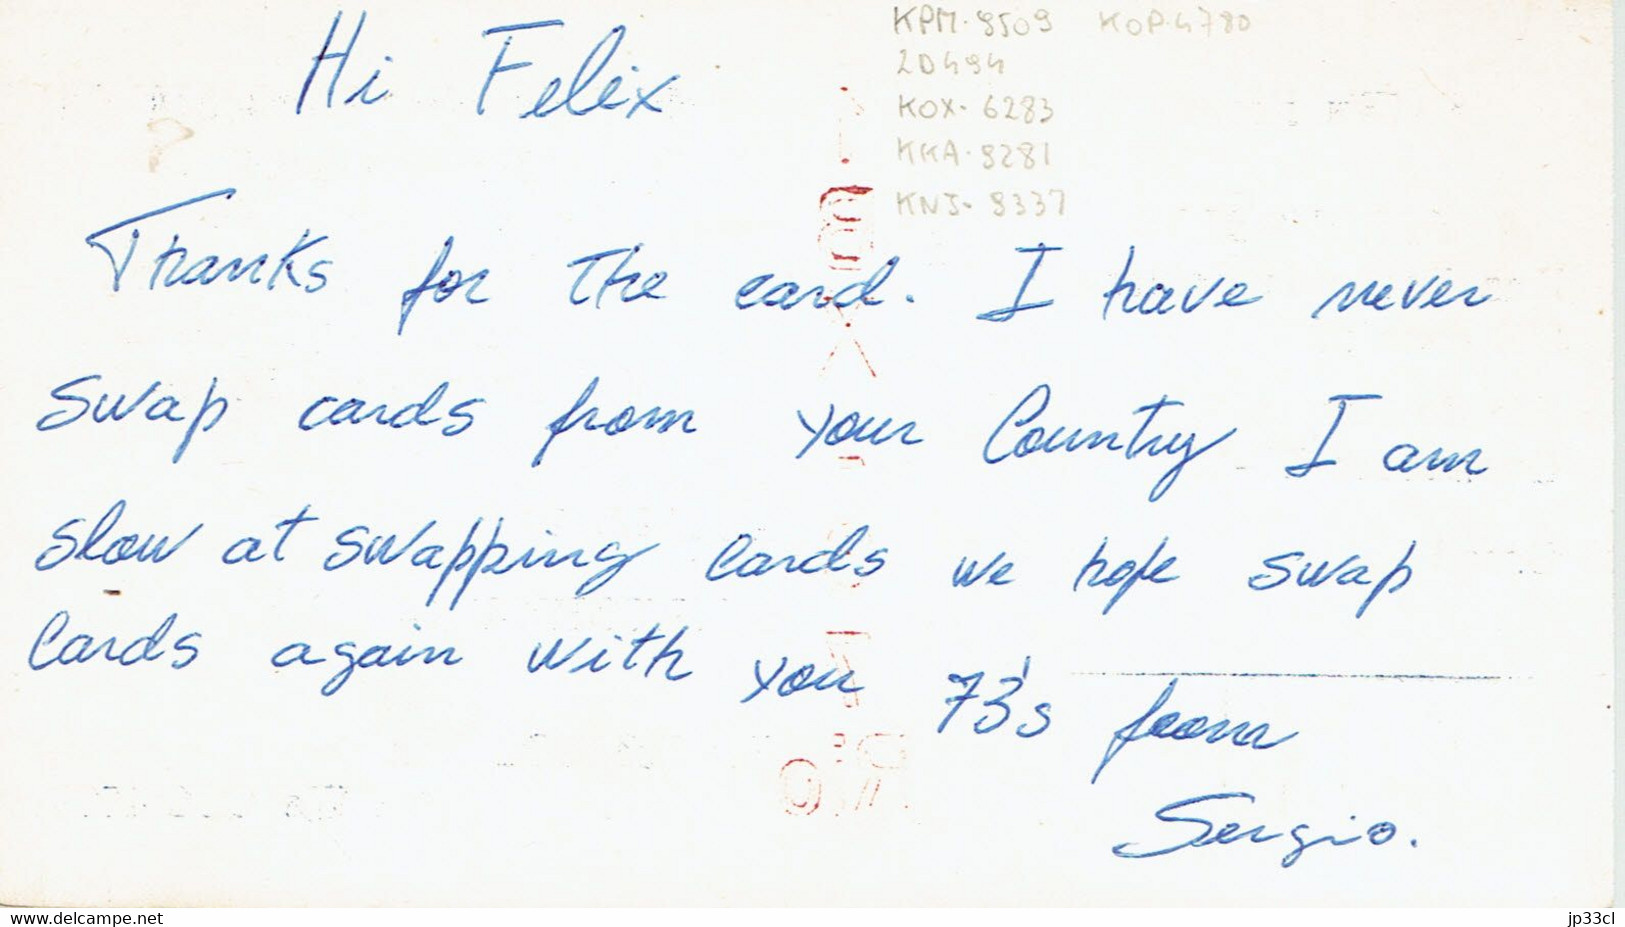 Hi Felix
KPM-9509 KOP-4780
2D494
KOX-6283
KKA-9281
KNJ-9337
Thanks for The card. I have never
swap cards from your Country I am
slow at swapping cards we hope swap
cards again with you 73's from
Sergio.
www.delcampe.net
jp33cl